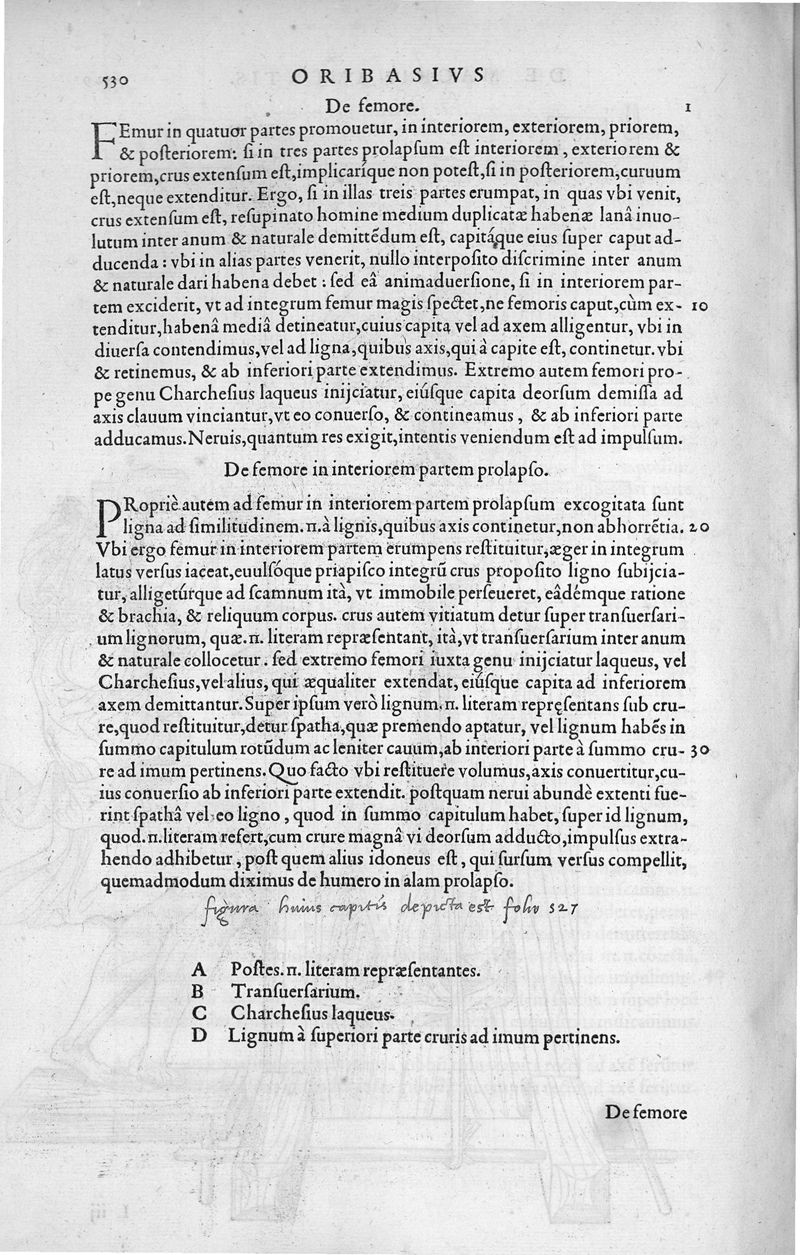 530 ORIBASIVS
De femore. 1
FEmur in quatuor partes promouetur, in interiorem, exteriorem, priorem,
& posteriorem: si in tres partes prolapsum est interiorem, exteriorem &
priorem, crus extensum est, implicaríque non potest, si in posteriorem, curuum
est, neque extenditur. Ergo, si in illas treis partes erumpat, in quas vbi venit,
crus extensum est, resupinato homine medium duplicatæ habenæ lanâ inuo-
lutum inter anum & naturale demittẽdum est, capitáque eius super caput ad-
ducenda: vbi in alias partes venerit, nullo interposito discrimine inter anum
& naturale dari habena debet: sed eâ animaduersione, si in interiorem par-
tem exciderit, vt ad integrum femur magis spectet, ne femoris caput, cùm ex- 10
tenditur, habenâ mediâ detineatur, cuius capita vel ad axem alligentur, vbi in
diuersa contendimus, vel ad ligna, quibus axis, qui à capite est, continetur. vbi
& retinemus, & ab inferiori parte extendimus. Extremo autem femori pro-
pe genu Charchesius laqueus inijciatur, eiúsque capita deorsum demissa ad
axis clauum vinciantur, vt eo conuerso, & contineamus, & ab inferiori parte
adducamus. Neruis, quantum res exigit, intentis veniendum est ad impulsum.
De femore in interiorem partem prolapso.
PRopriè autem ad femur in interiorem partem prolapsum excogitata sunt
ligna ad similitudinem .π. à lignis, quibus axis continetur, non abhorrẽtia. 20
Vbi ergo femur in interiorem partem erumpens restituitur, æger in integrum
latus versus iaceat, euulsóque priapisco integrũ crus proposito ligno subijcia-
tur, alligetúrque ad scamnum ità, vt immobile perseueret, eâdémque ratione
& brachia, & reliquum corpus. crus autem vitiatum detur super transuersari-
um lignorum, quæ .π. literam repræsentant, ità, vt transuersarium inter anum
& naturale collocetur. sed extremo femori iuxta genu inijciatur laqueus, vel
Charchesius, vel alius, qui æqualiter extendat, eiúsque capita ad inferiorem
axem demittantur. Super ipsum verò lignum .π. literam repręsentans sub cru-
re, quod restituitur, detur spatha, quæ premendo aptatur, vel lignum habẽs in
summo capitulum rotũdum ac leniter cauum, ab interiori parte à summo cru- 30
re ad imum pertinens. Quo facto vbi restituere volumus, axis conuertitur, cu-
ius conuersio ab inferiori parte extendit. postquam nerui abundè extenti fue-
rint spathâ vel eo ligno, quod in summo capitulum habet, super id lignum,
quod .π. literam refert, cum crure magnâ vi deorsum adducto, impulsus extra-
hendo adhibetur, post quem alius idoneus est, qui sursum versus compellit,
quemadmodum diximus de humero in alam prolapso.
figura huius capitis depicta est folio 527
A Postes .π. literam repræsentantes.
B Transuersarium.
C Charchesius laqueus.
D Lignum à superiori parte cruris ad imum pertinens.
De femore